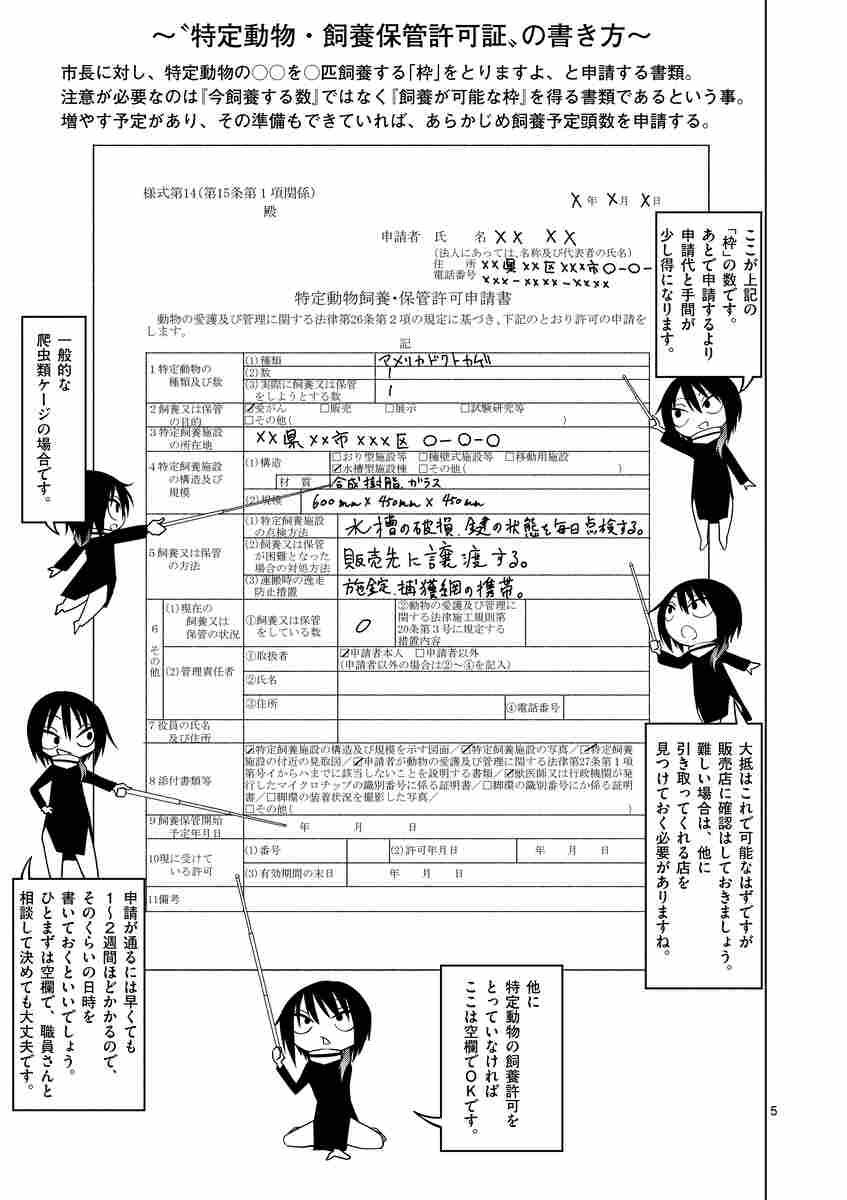 ～〝特定動物・飼養保管許可証〟の書き方～
市長に対し、特定動物の○○を○匹飼養する「枠」をとりますよ、と申請する書類。
注意が必要なのは『今飼養する数』ではなく『飼養が可能な枠』を得る書類であるという事。
増やす予定があり、その準備もできていれば、あらかじめ飼養予定頭数を申請する。
様式第14(第15条第1項関係)
殿
X年 X月 X日
申請者 氏 名 XX XX
(法人にあっては、名称及び代表者の氏名)
住 所 XX県XX区XXX市○-○-
電話番号 XXX-XXXX-XXXX
特定動物飼養・保管許可申請書
動物の愛護及び管理に関する法律第26条第2項の規定に基づき、下記のとおり許可の申請を
します。
記
1 特定動物の
種類及び数
(1)種類 アメリカドクトカゲ
(2)数 1
(3)実際に飼養又は保管
をしようとする数 1
2 飼養又は保管
の目的
☑愛がん □販売 □展示 □試験研究等
□その他( )
3 特定飼養施設
の所在地
XX県XX市XXX区 ○-○-○
4 特定飼養施設
の構造及び
規模
(1)構造
□おり型施設等 □擁壁式施設等 □移動用施設
☑水槽型施設棟 □その他( )
材 質 合成樹脂.ガラス
(2)規模 600mm×450mm×450mm
5 飼養又は保管
の方法
(1)特定飼養施設
の点検方法
水槽の破損.鍵の状態を毎日点検する。
(2)飼養又は保管
が困難となった
場合の対処方法
販売先に譲渡する。
(3)運搬時の逸走
防止措置
施錠.捕獲網の携帯。
6 その他
(1)現在の
飼養又は
保管の状況
①飼養又は保管
をしている数
0
②動物の愛護及び管理に
関する法律施工規則第
20条第3号に規定する
措置内容
(2)管理責任者
①取扱者
☑申請者本人 □申請者以外
(申請者以外の場合は②～④を記入)
②氏名
③住所
④電話番号
7 役員の氏名
及び住所
8 添付書類等
☑特定飼養施設の構造及び規模を示す図面／☑特定飼養施設の写真／☑特定飼養
施設の付近の見取図／☑申請者が動物の愛護及び管理に関する法律第27条第1項
第号イからハまでに該当しないことを説明する書類／☑獣医師又は行政機関が発
行したマイクロチップの識別番号に係る証明書／□脚環の識別番号にか係る証明
書／□脚環の装着状況を撮影した写真／
□その他( )
9 飼養保管開始
予定年月日
年 月 日
10現に受けて
いる許可
(1)番号
(2)許可年月日 年 月 日
(3)有効期間の末日 年 月 日
11備考
ここが上記の
「枠」の数です。
あとで申請するより
申請代と手間が
少し得になります。
一般的な
爬虫類ケージの場合です。
大抵はこれで可能なはずですが
販売店に確認はしておきましょう。
難しい場合は、他に
引き取ってくれる店を
見つけておく必要がありますね。
申請が通るには早くても
1～2週間ほどかかるので、
そのくらいの日時を
書いておくといいでしょう。
ひとまずは空欄で、職員さんと
相談して決めても大丈夫です。
他に
特定動物の飼養許可を
とっていなければ
ここは空欄でOKです。
5